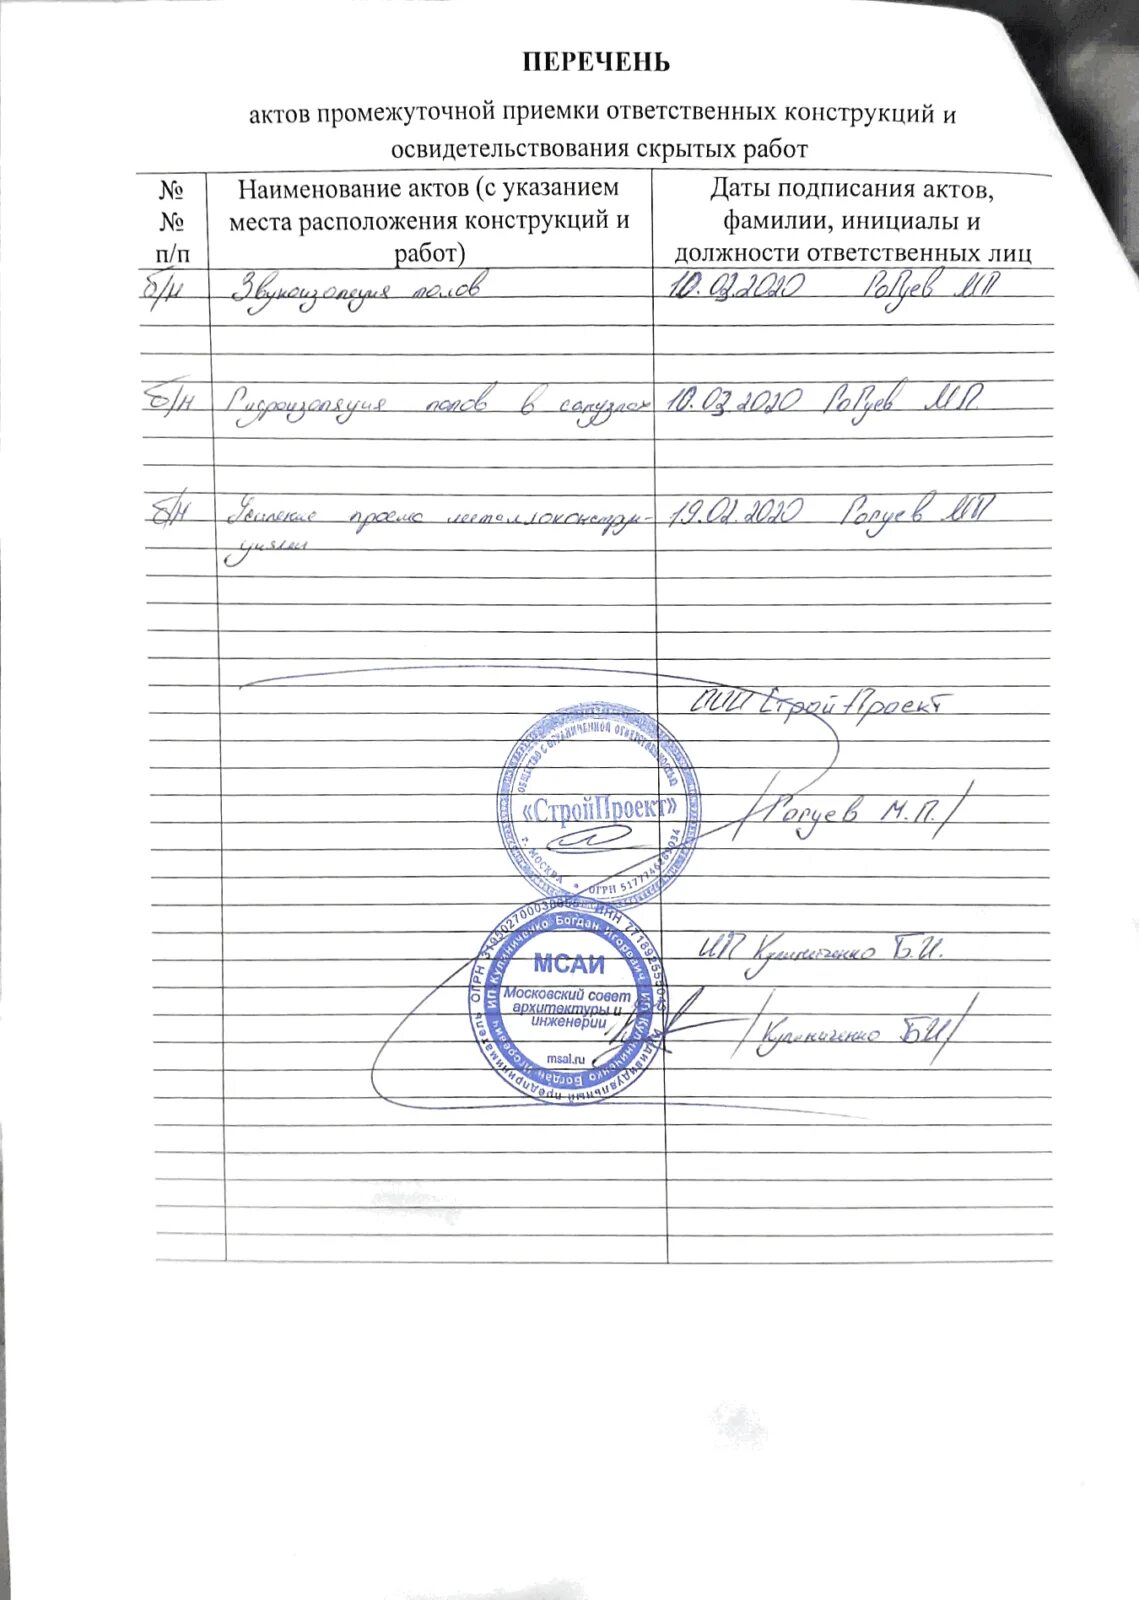 ПЕРЕЧЕНЬ
актов промежуточной приемки ответственных конструкций и
освидетельствования скрытых работ
№ № п/п
Наименование актов (с указанием места расположения конструкций и работ)
Даты подписания актов, фамилии, инициалы и должности ответственных лиц
б/н Звукоизоляция полов 10.03.2020 Рогуев МП
б/н Гидроизоляция полов в санузлах 10.03.2020 Рогуев М.П.
б/н Усиление проема металлоконструк- 19.02.2020 Рогуев МП
циями
ООО СтройПроект
ОБЩЕСТВО С ОГРАНИЧЕННОЙ ОТВЕТСТВЕННОСТЬЮ
«СтройПроект»
г. МОСКВА * ОГРН
/Рогуев М.П./
ИП Кулиниченко Б.И.
ИП Кулиниченко Богдан Игоревич
ИП Кулиниченко Богдан Игоревич
Индивидуальный предприниматель ОГРН
ИНН
МСАИ
Московский совет
архитектуры и
инженерии
msal.ru
/Кулиниченко БИ/